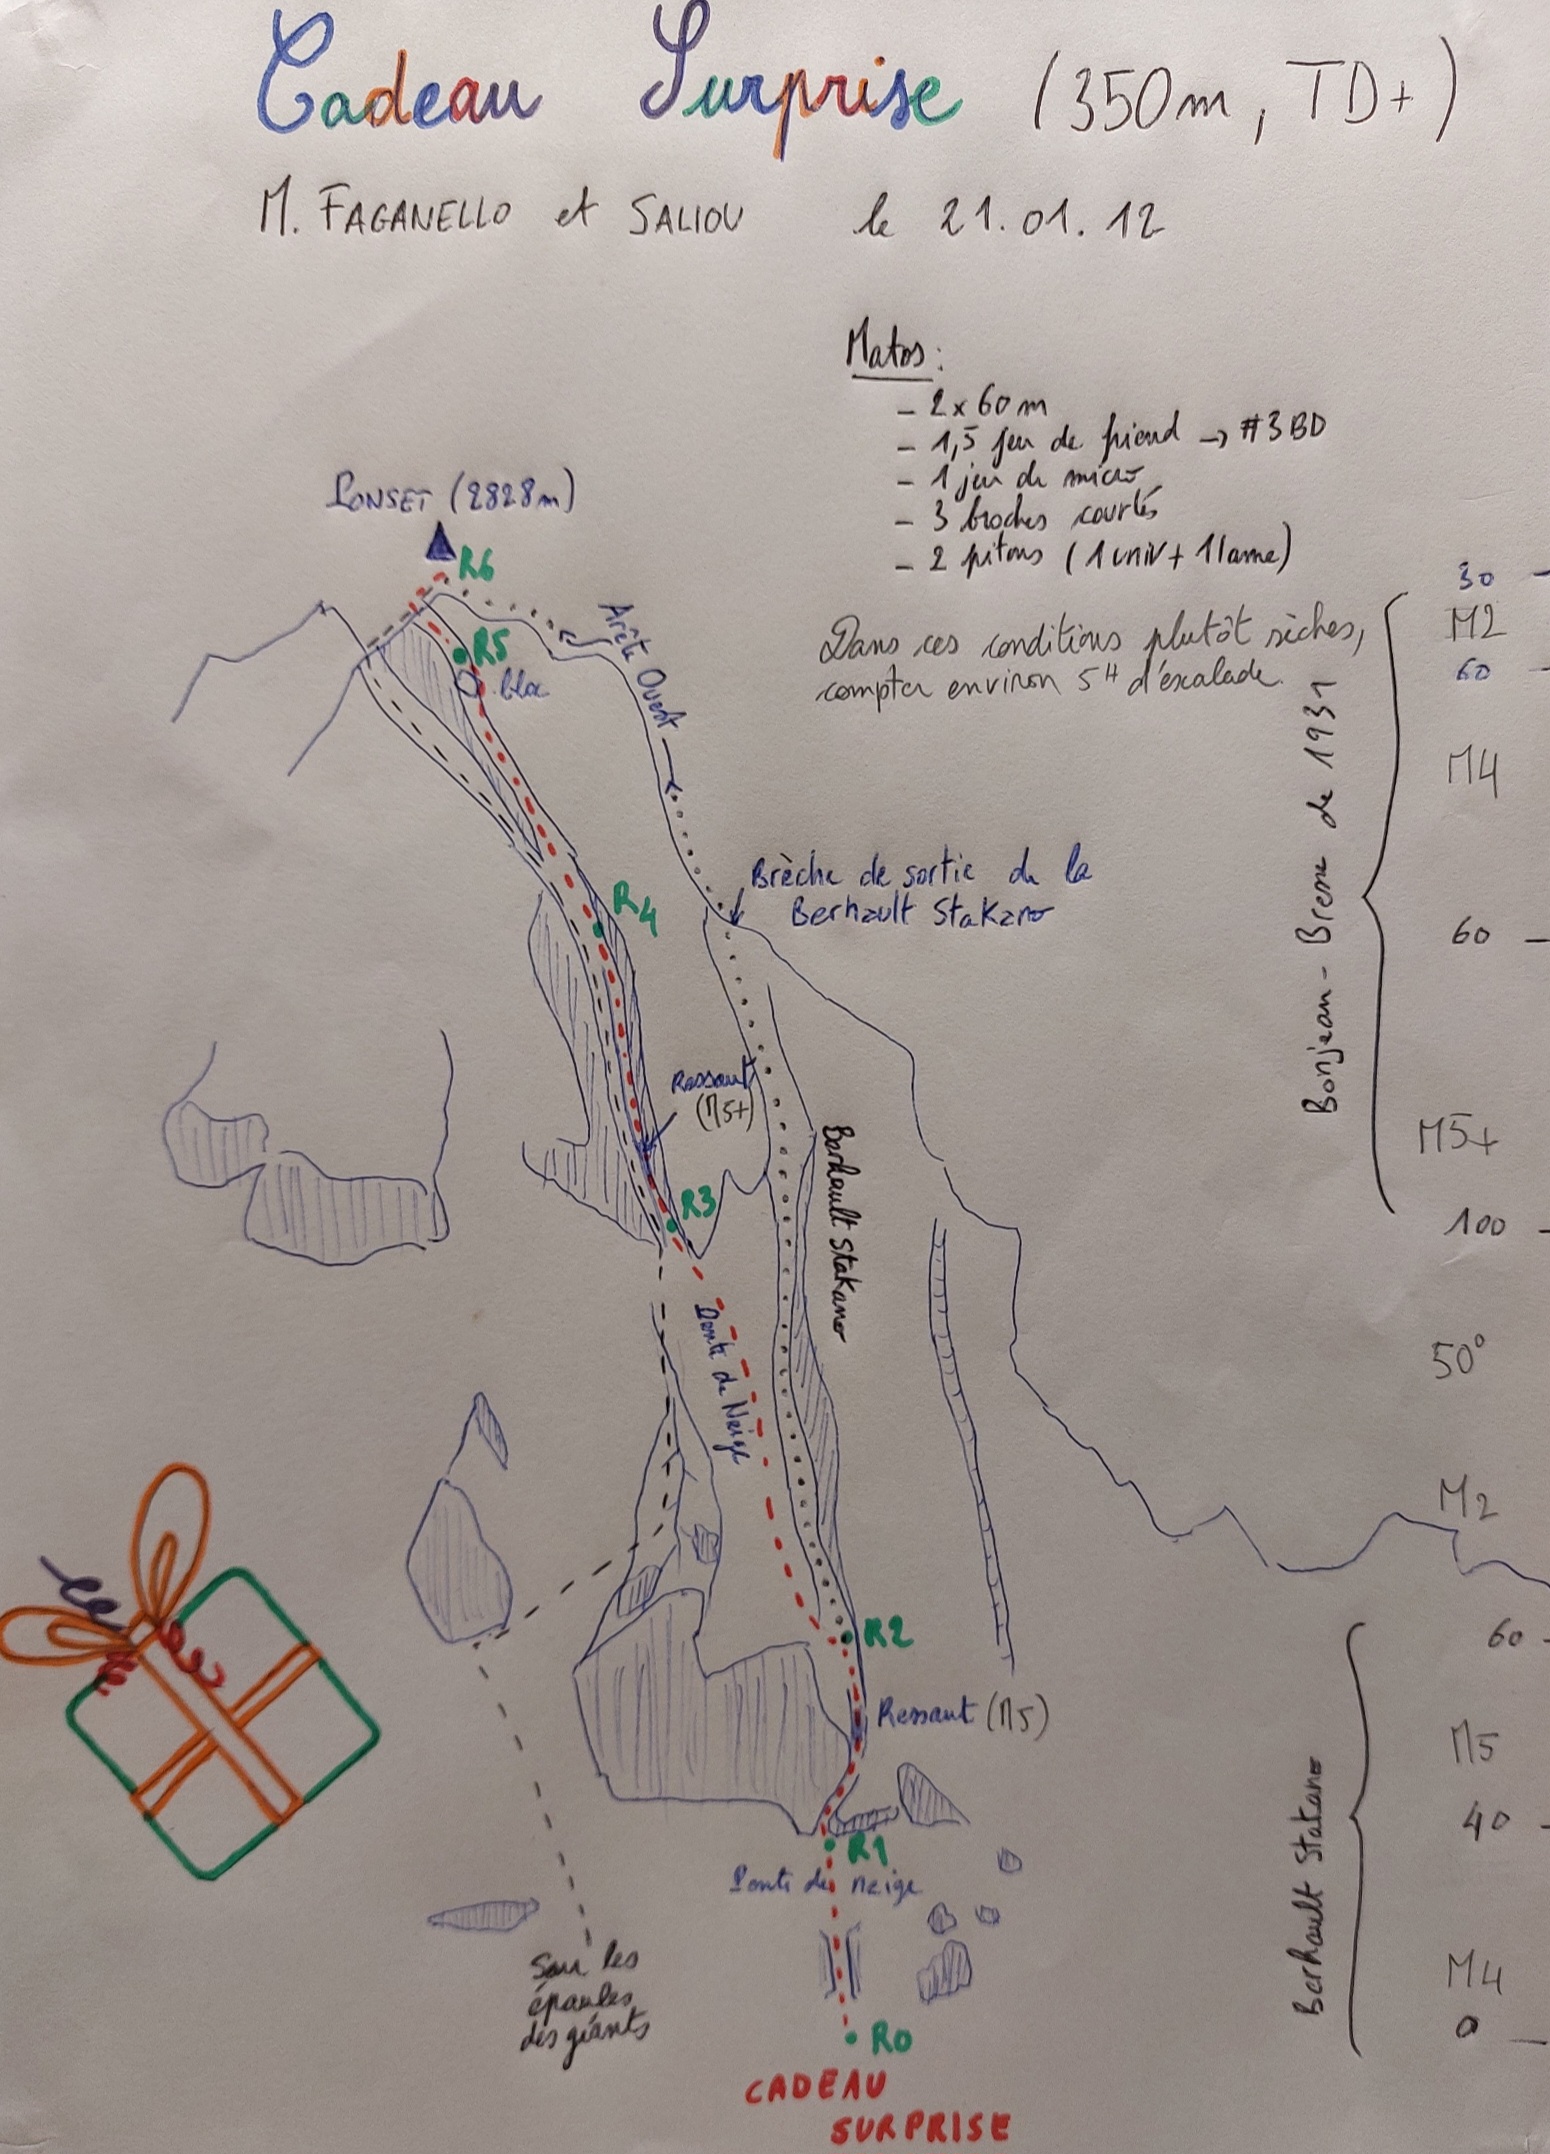 Cadeau Surprise (350m, TD+)
M. FAGANELLO et SALIOU le 21.01.12
Matos :
- 2x60m
- 1,5 jeu de friend → #3BD
- 1 jeu de micro
- 3 broches courtes
- 2 pitons (1 univ + 1 lame)
Dans ces conditions plutôt sèches,
compter environ 5H d'escalade.
PONSET (2828m)
R6
R5
bloc
Arête Ouest
Brèche de sortie de la
Berhault Stakano
R4
Ressaut
(M5+)
R3
Berhault Stakano
Pente de Neige
R2
Ressaut (M5)
R1
Pente de neige
Sur les
épaules
des géants
R0
CADEAU
SURPRISE
30
M2
60
M4
60
M5+
100
50°
M2
60
M5
40
M4
0
Bonjean - Brene de 1931
Berhault Stakano